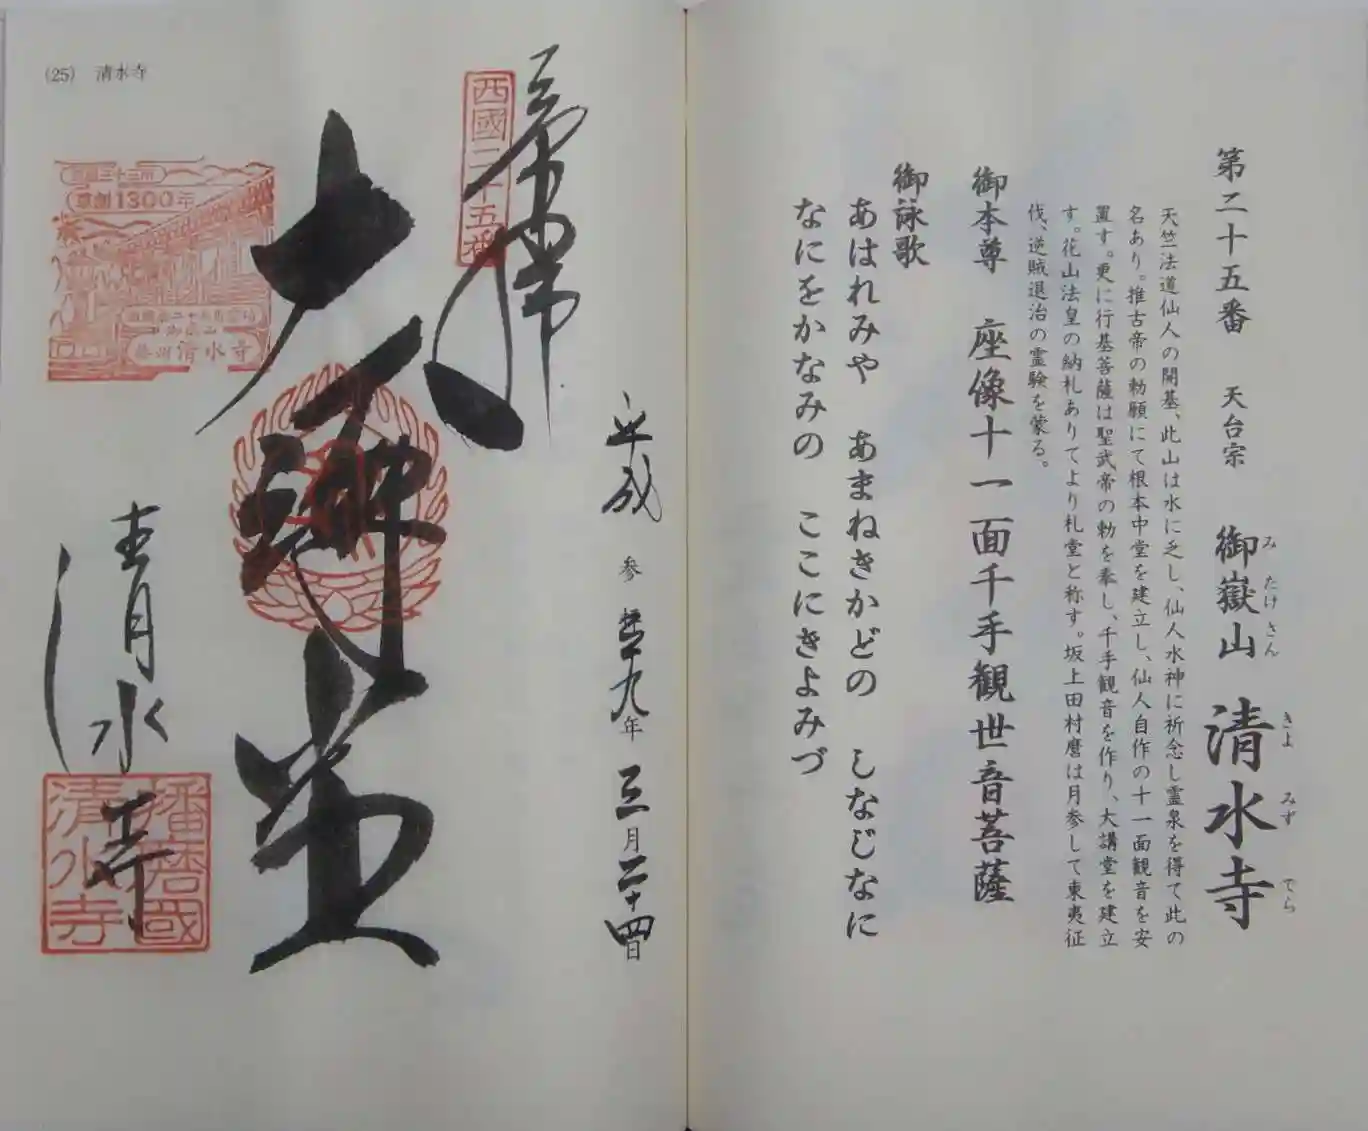 第二十五番　天台宗　御嶽山　清水寺
み たけ さん
きよ みず でら
天竺法道仙人の開基、此山は水に乏し、仙人水神に祈念し霊泉を得て此の
名あり。推古帝の勅願にて根本中堂を建立し、仙人自作の十一面観音を安
置す。更に行基菩薩は聖武帝の勅を奉し、千手観音を作り、大講堂を建立
す。花山法皇の納札ありてより札堂と称す。坂上田村麿は月参して東夷征
伐、逆賊退治の霊験を蒙る。
御本尊　座像十一面千手観世音菩薩
御詠歌
あはれみや　あまねきかどの　しなじなに
なにをかなみの　ここにきよみづ
平成　参　九年　三月二十四日
奉拝
西國二十五番
大
堂
(25)　清水寺
草創1300年
清水寺
清水寺
播磨國
清水寺